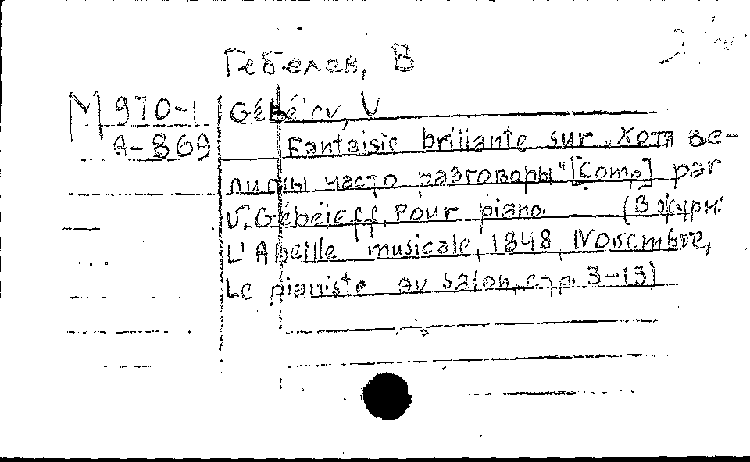 Гебелев, В
М 970-1 Gébélev, V
А-869 Fantaisie brillante sur „Хотя ве-
ликды часто разговоры" [Comp] par
V. Gébéleff, pour piano (В журн:
L'Abeille musicale, 1848, Novembre,
Le pianiste au salon, стр. 3-13)